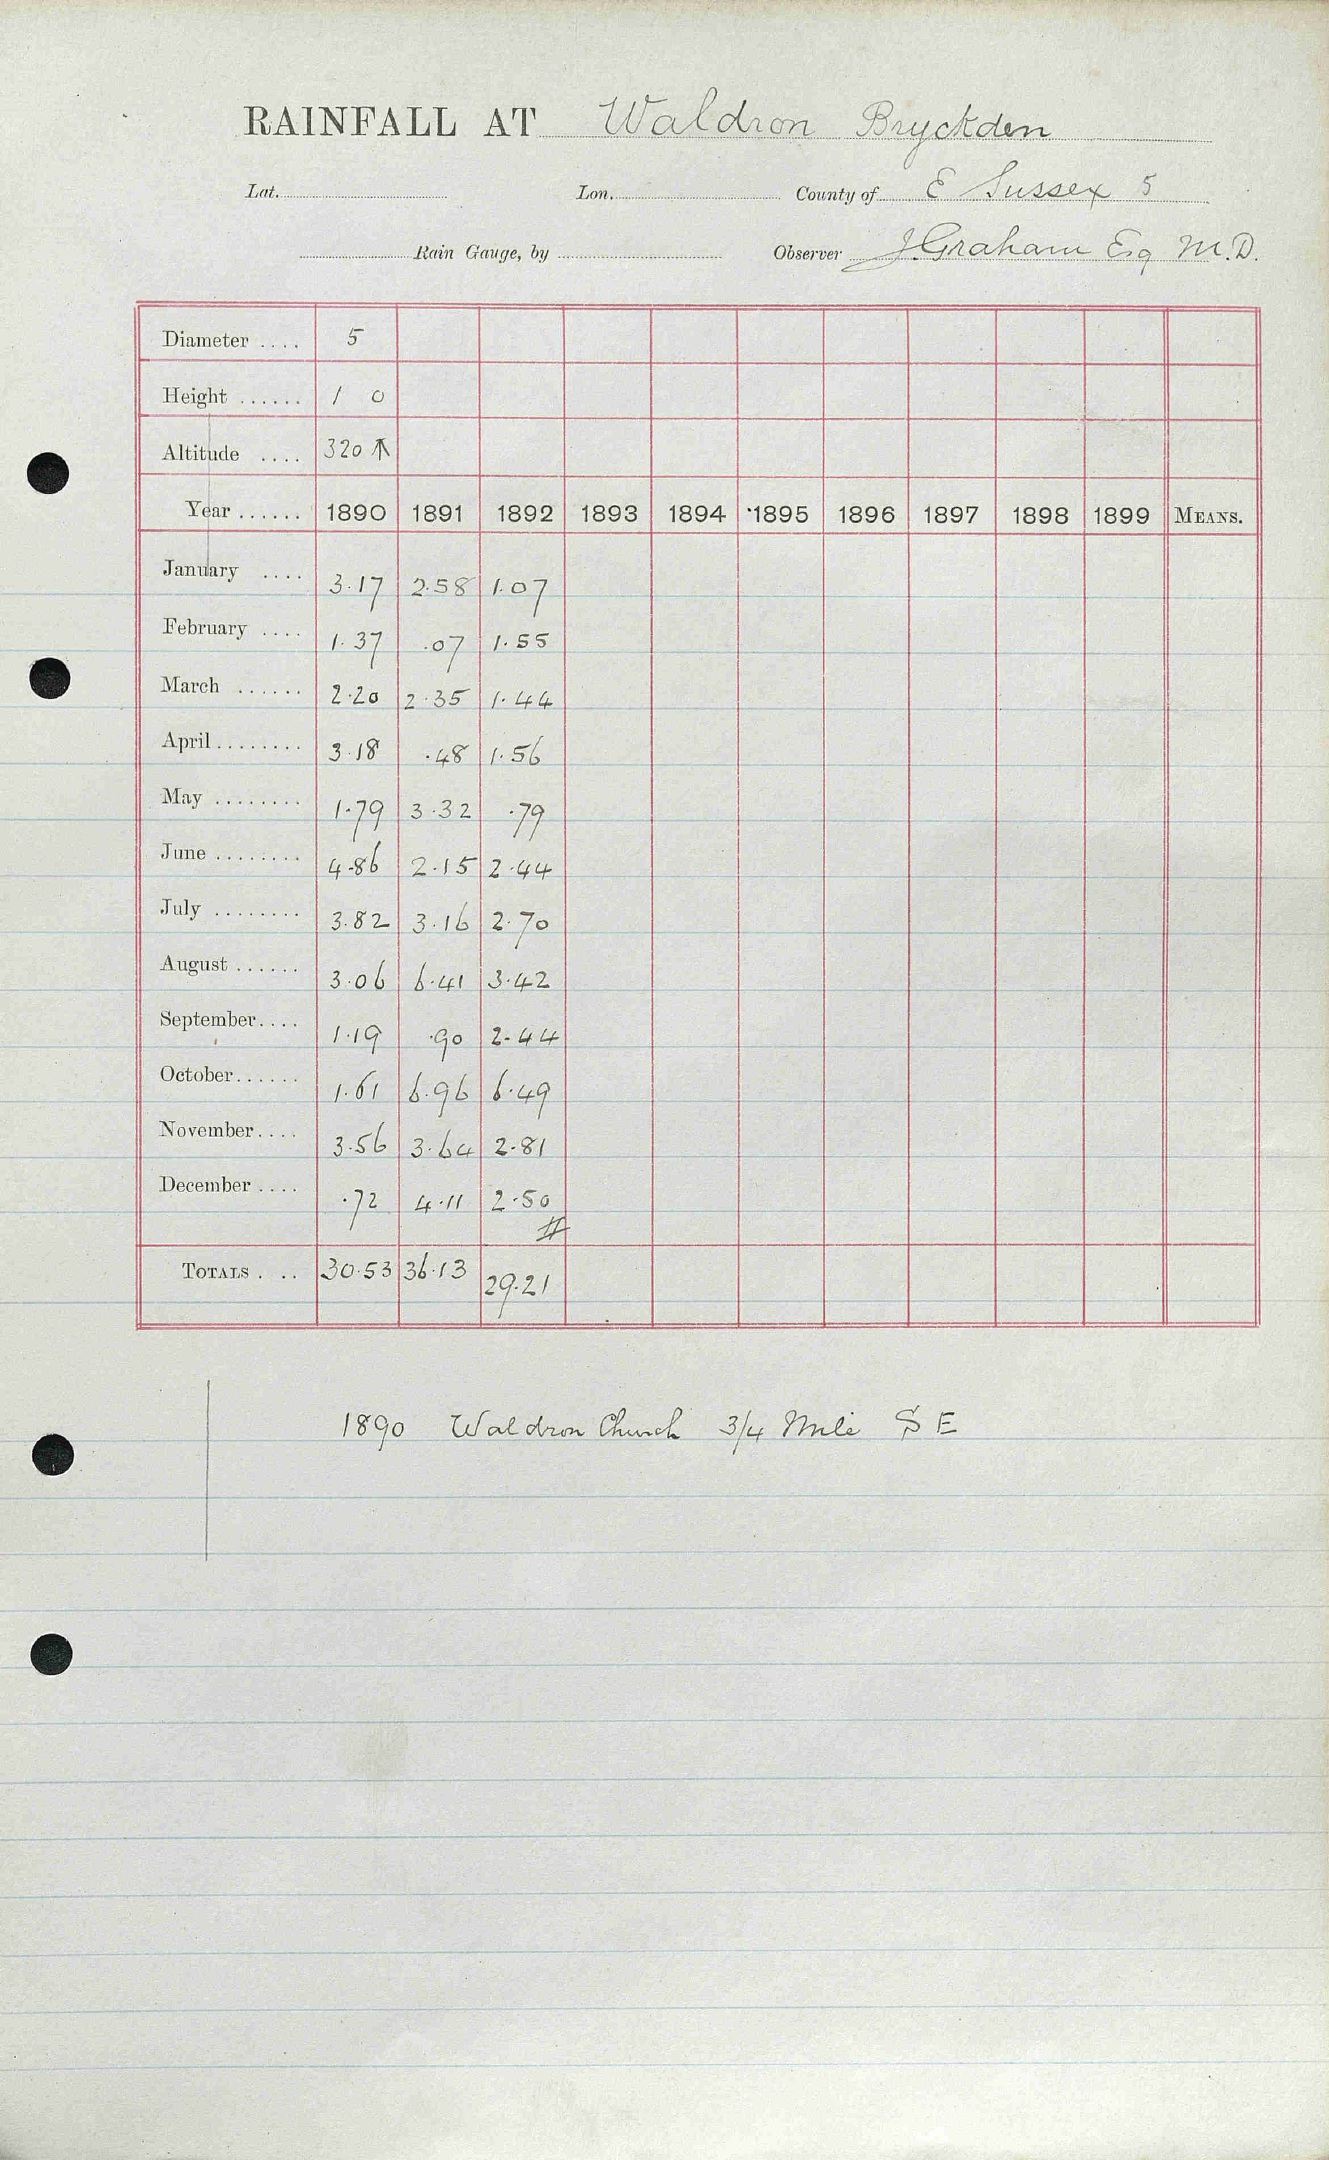 RAINFALL AT Waldron Bryckden
Lat. Lon. County of E Sussex 5
Rain Gauge, by Observer J. Graham Esq M.D.
Diameter .... 5
Height ...... 1 0
Altitude .... 320 ↑
Year ...... 1890 1891 1892 1893 1894 1895 1896 1897 1898 1899 MEANS.
January .... 3.17 2.58 1.07
February .... 1.37 .07 1.55
March ...... 2.20 2.35 1.44
April ........ 3.18 .48 1.56
May ........ 1.79 3.32 .79
June ........ 4.86 2.15 2.44
July ........ 3.82 3.16 2.70
August ...... 3.06 6.41 3.42
September .... 1.19 .90 2.44
October ...... 1.61 6.96 6.49
November .... 3.56 3.64 2.81
December .... .72 4.11 2.50
TOTALS . .. 30.53 36.13 29.21
1890 Waldron Church 3/4 Mile S E